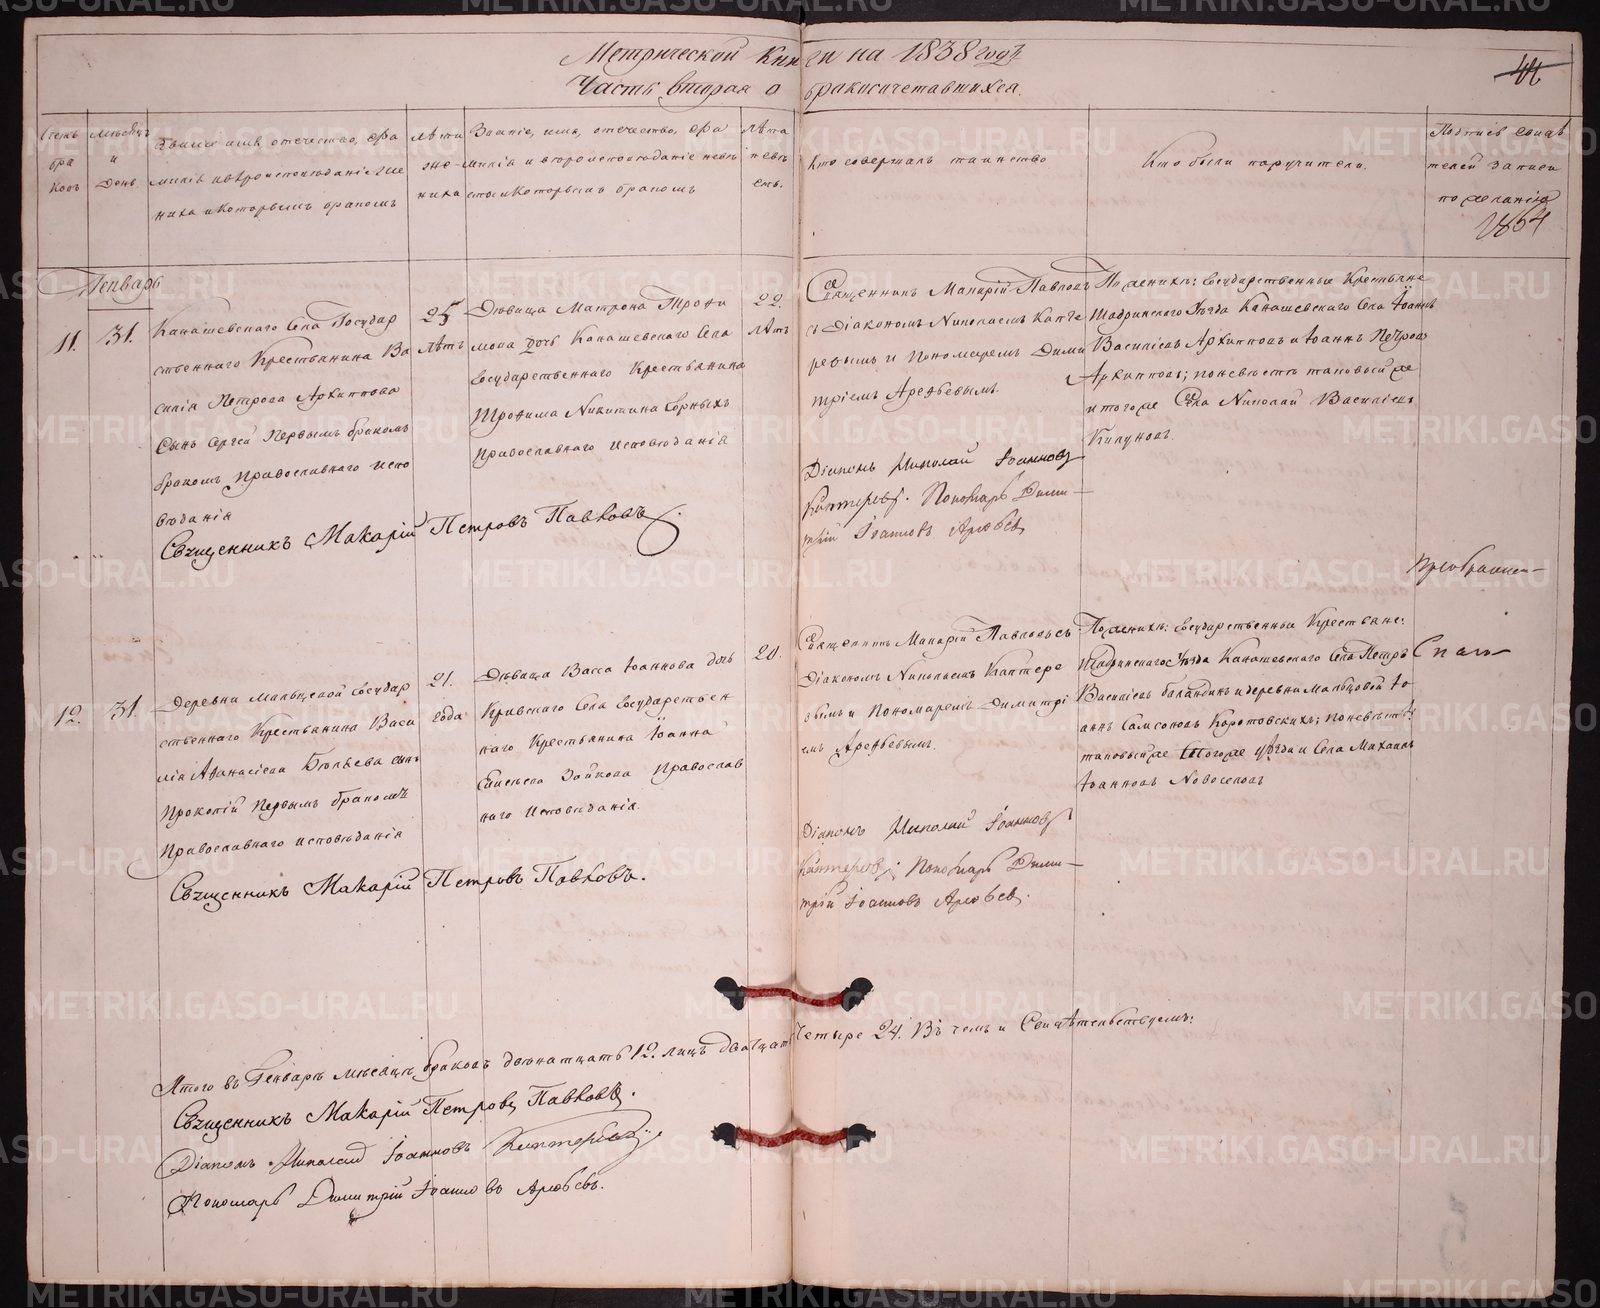 Метрической Книги на 1838 годъ
Часть вторая о бракосочетавшихся.
46
Счетъ браковъ
Мѣсяцъ и день.
Званіе имя, отечество, фамилія и вѣроисповѣданіе жениха и которымъ бракомъ
Лѣта жениха
Званіе, имя, отечество, фамилія и вѣроисповѣданіе невѣсты и которымъ бракомъ
Лѣта невѣсты.
Кто совершалъ таинство
Кто были поручители.
Подпись свидѣтелей записи по желанію
1864
Генварь
11.
31.
Канашевскаго Села Государ
ственнаго Крестьянина Ва
силія Петрова Архипова
Сынъ Сергей Первымъ бракомъ
бракомъ Православнаго испо
вѣданія
25
лѣтъ
Дѣвица Матрона Трофи
мова дочь Канашевскаго Села
Государственнаго Крестьянина
Трофима Никитина Горныхъ
Православнаго исповѣданія
22.
лѣтъ
Священникъ Макарій Павловъ
съ Діакономъ Николаемъ Капте
ревымъ и Пономаремъ Дими
тріемъ Арефьевымъ.
Діаконъ Николай Іоанновъ
Каптеревъ. Пономарь Дими-
трій Іоанновъ Арефьевъ
По женихѣ: Государственные Крестьяне
Шадринскаго Уѣзда Канашевскаго Села Іоаннъ
Василіевъ Архиповъ и Іоаннъ Петровъ
Архиповъ; по невѣстѣ таковый же
и того же Села Николай Василіевъ
Священникъ Макарій Петровъ Павловъ.
Преображен-
12.
31.
Деревни Мальцевой Государ
ственнаго Крестьянина Васи
лія Афанасіева сынъ
Прокопій Первымъ бракомъ
Православнаго исповѣданія
21.
года
Дѣвица Васса Іоаннова дочь
Кривскаго Села Государствен
наго Крестьянина Іоанна
Елисѣева Зайкова Православ
наго Исповѣданія.
20.
Священникъ Макарій Павловъ съ
Діакономъ Николаемъ Каптере
вымъ и Пономаремъ Димитрі
емъ Арефьевымъ.
Діаконъ Николай Іоанновъ
Каптеревъ; Пономарь Дими-
трій Іоанновъ Арефьевъ.
По женихѣ: Государственныи Крестьяне:
Шадринскаго Уѣзда Канашевскаго Села Петръ
Василіевъ Баландинъ и деревни Мальцовой Іо
аннъ Самсоновъ Коротовскихъ; по невѣстѣ:
таковый же того же уѣзда и Села Михаилъ
Іоанновъ Новоселовъ
Спас-
Священникъ Макарій Петровъ Павловъ.
Итого въ Генварѣ мѣсяцѣ браковъ двѣнатцать 12. лицъ двадцать Четыре 24. Въ чемъ и Свидѣтельствуемъ:
Священникъ Макарій Петровъ Павловъ.
Діаконъ Николай Іоанновъ Каптеревъ
Пономарь Димитрій Іоанновъ Арефьевъ.
METRIKI.GASO-URAL.RU